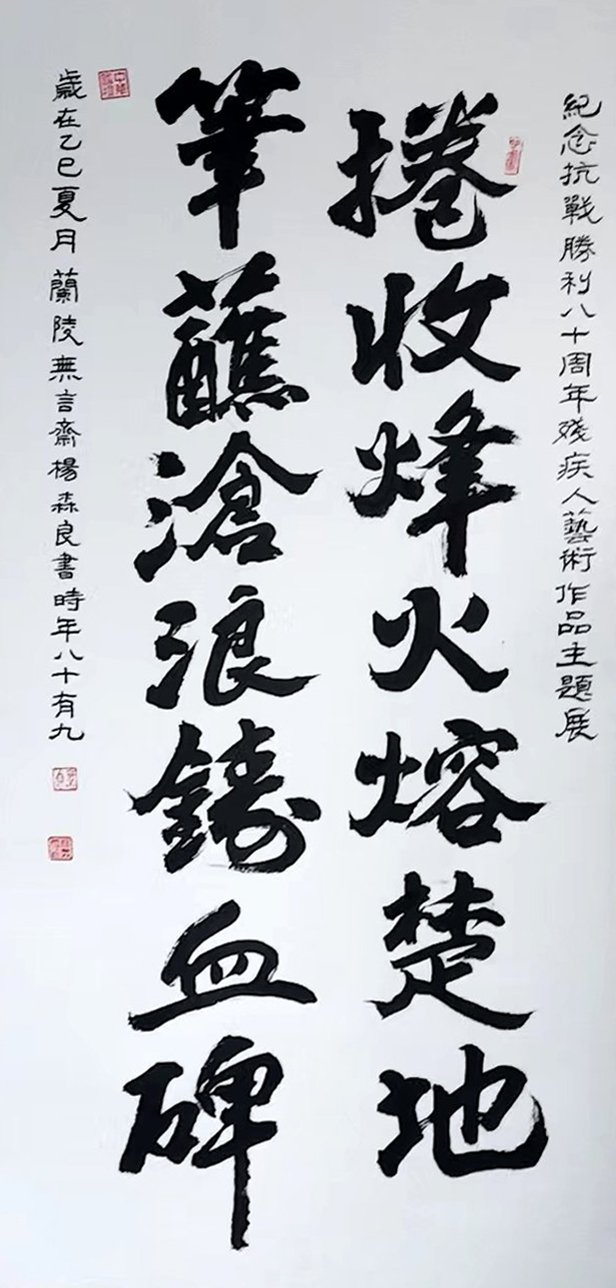 紀念抗戰勝利八十周年殘疾人藝術作品主題展
捲收烽火熔楚地
筆蘸滄浪鑄血碑
歲在乙巳夏月蘭陵無言齋楊森良書時年八十有九